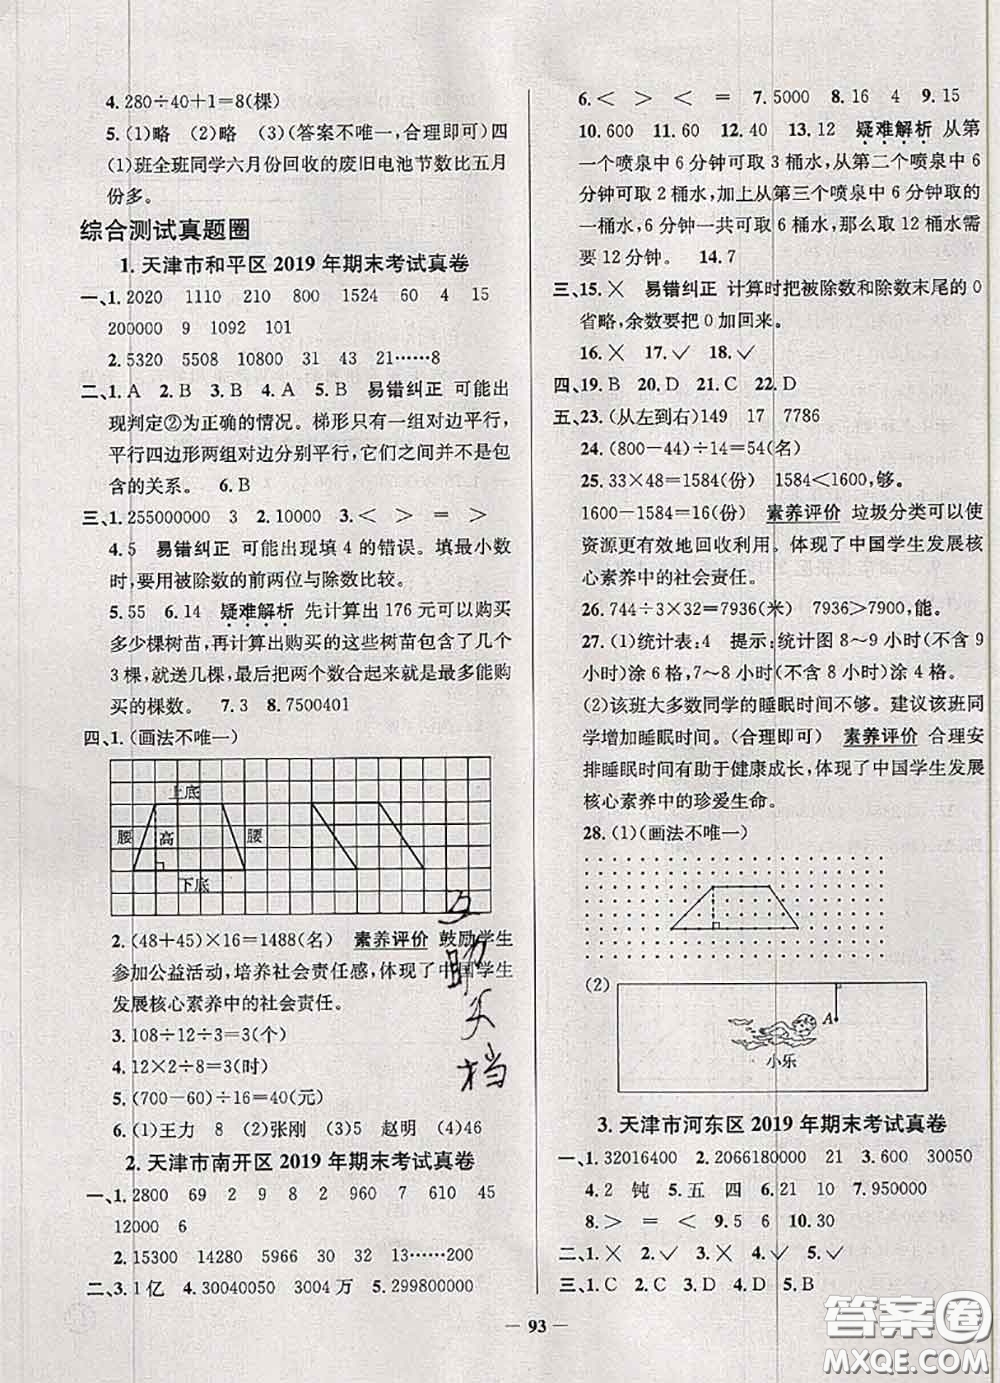 4. 280÷40+1=8(棵)
5. (1)略 (2)略 (3)(答案不唯一,合理即可)四
(1)班全班同学六月份回收的废旧电池节数比五月
份多。
综合测试真题圈
1. 天津市和平区 2019 年期末考试真卷
一、1. 2020 1110 210 800 1524 60 4 15
200000 9 1092 101
2. 5320 5508 10800 31 43 21……8
二、1. A 2. B 3. B 4. A 5. B 易错纠正 可能出
现判定②为正确的情况。梯形只有一组对边平行,
平行四边形两组对边分别平行,它们之间并不是
包含的关系。 6. B
三、1. 255000000 3 2. 10000 3. < > = >
4. 5 易错纠正 可能出现填 4 的错误。填最小数
时,要用被除数的前两位与除数比较。
5. 55 6. 14 疑难解析 先计算出 176 元可以购买
多少棵树苗,再计算出购买的这些树苗包含了几个
3 棵,就送几棵,最后把两个数合起来就是最多能购
买的棵数。 7. 3 8. 7500401
四、1. (画法不唯一)
上底
腰 高 腰
下底
2. (48+45)×16=1488(名) 素养评价 鼓励学生
参加公益活动,培养社会责任感,体现了中国学生
发展核心素养中的社会责任。
3. 108÷12÷3=3(个)
4. 12×2÷8=3(时)
5. (700-60)÷16=40(元)
6. (1)王力 8 (2)张刚 (3)5 赵明 (4)46
2. 天津市南开区 2019 年期末考试真卷
一、1. 2800 69 2 9 8 2 960 7 610 45
12000 6
2. 15300 14280 5966 30 32 13……200
二、3. 1 亿 4. 30040050 3004 万 5. 299800000
6. < > < = 7. 5000 8. 16 4 9. 15
10. 600 11. 60 12. 40 13. 12 疑难解析 从第
一个喷泉中 6 分钟可取 3 桶水,从第二个喷泉中
6 分钟可取 2 桶水,加上从第三个喷泉中 6 分钟取的
一桶水,6 分钟一共可取 6 桶水,那么取 12 桶水需
要 12 分钟。 14. 7
三、15. × 易错纠正 计算时把被除数和除数末尾的 0
省略,余数要把 0 加回来。
16. × 17. ✓ 18. ✓
四、19. B 20. D 21. C 22. D
五、23. (从左到右)149 17 7786
24. (800-44)÷14=54(名)
25. 33×48=1584(份) 1584<1600,够。
1600-1584=16(份) 素养评价 垃圾分类可以使
资源更有效地回收利用。体现了中国学生发展核
心素养中的社会责任。
26. 744÷3×32=7936(米) 7936>7900,能。
27. (1)统计表:4 提示:统计图 8~9 小时(不含 9
小时)涂 6 格,7~8 小时(不含 8 小时)涂 4 格。
(2)该班大多数同学的睡眠时间不够。建议该班同
学增加睡眠时间。(合理即可) 素养评价 合理安
排睡眠时间有助于健康成长,体现了中国学生发展
核心素养中的珍爱生命。
28. (1)(画法不唯一)
(2)
A
小乐
3. 天津市河东区 2019 年期末考试真卷
一、1. 32016400 2. 2066180000 3. 600 30050
4. 2 钝 5. 五 四 6. 21 10 7. 950000
8. > = < 9. 5 6 10. 30
二、1. × 2. ✓ 3. × 4. ✓ 5. ✓
三、1. C 2. C 3. D 4. D 5. B
— 93 —
互
助
文
档
答案圈
MXQE.COM